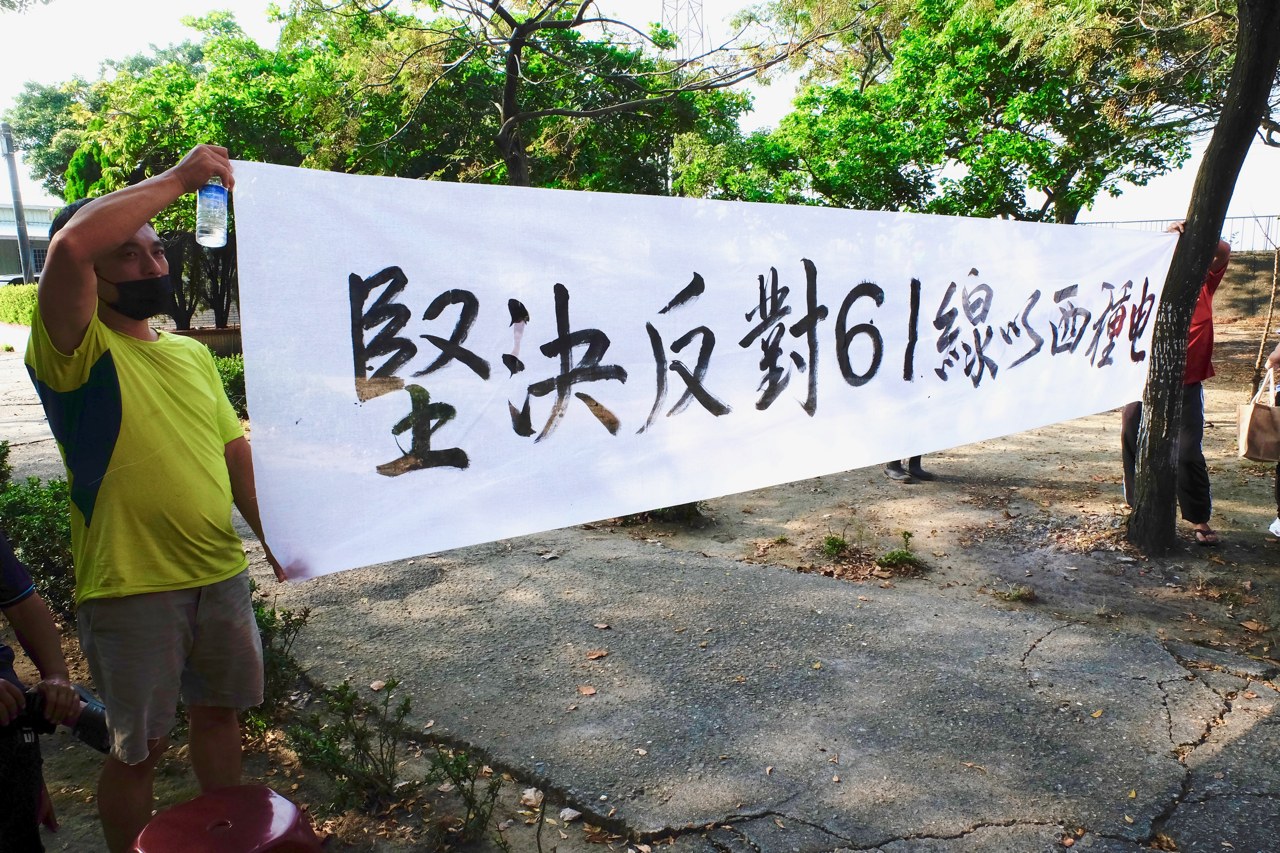 堅決反對61線以西種电